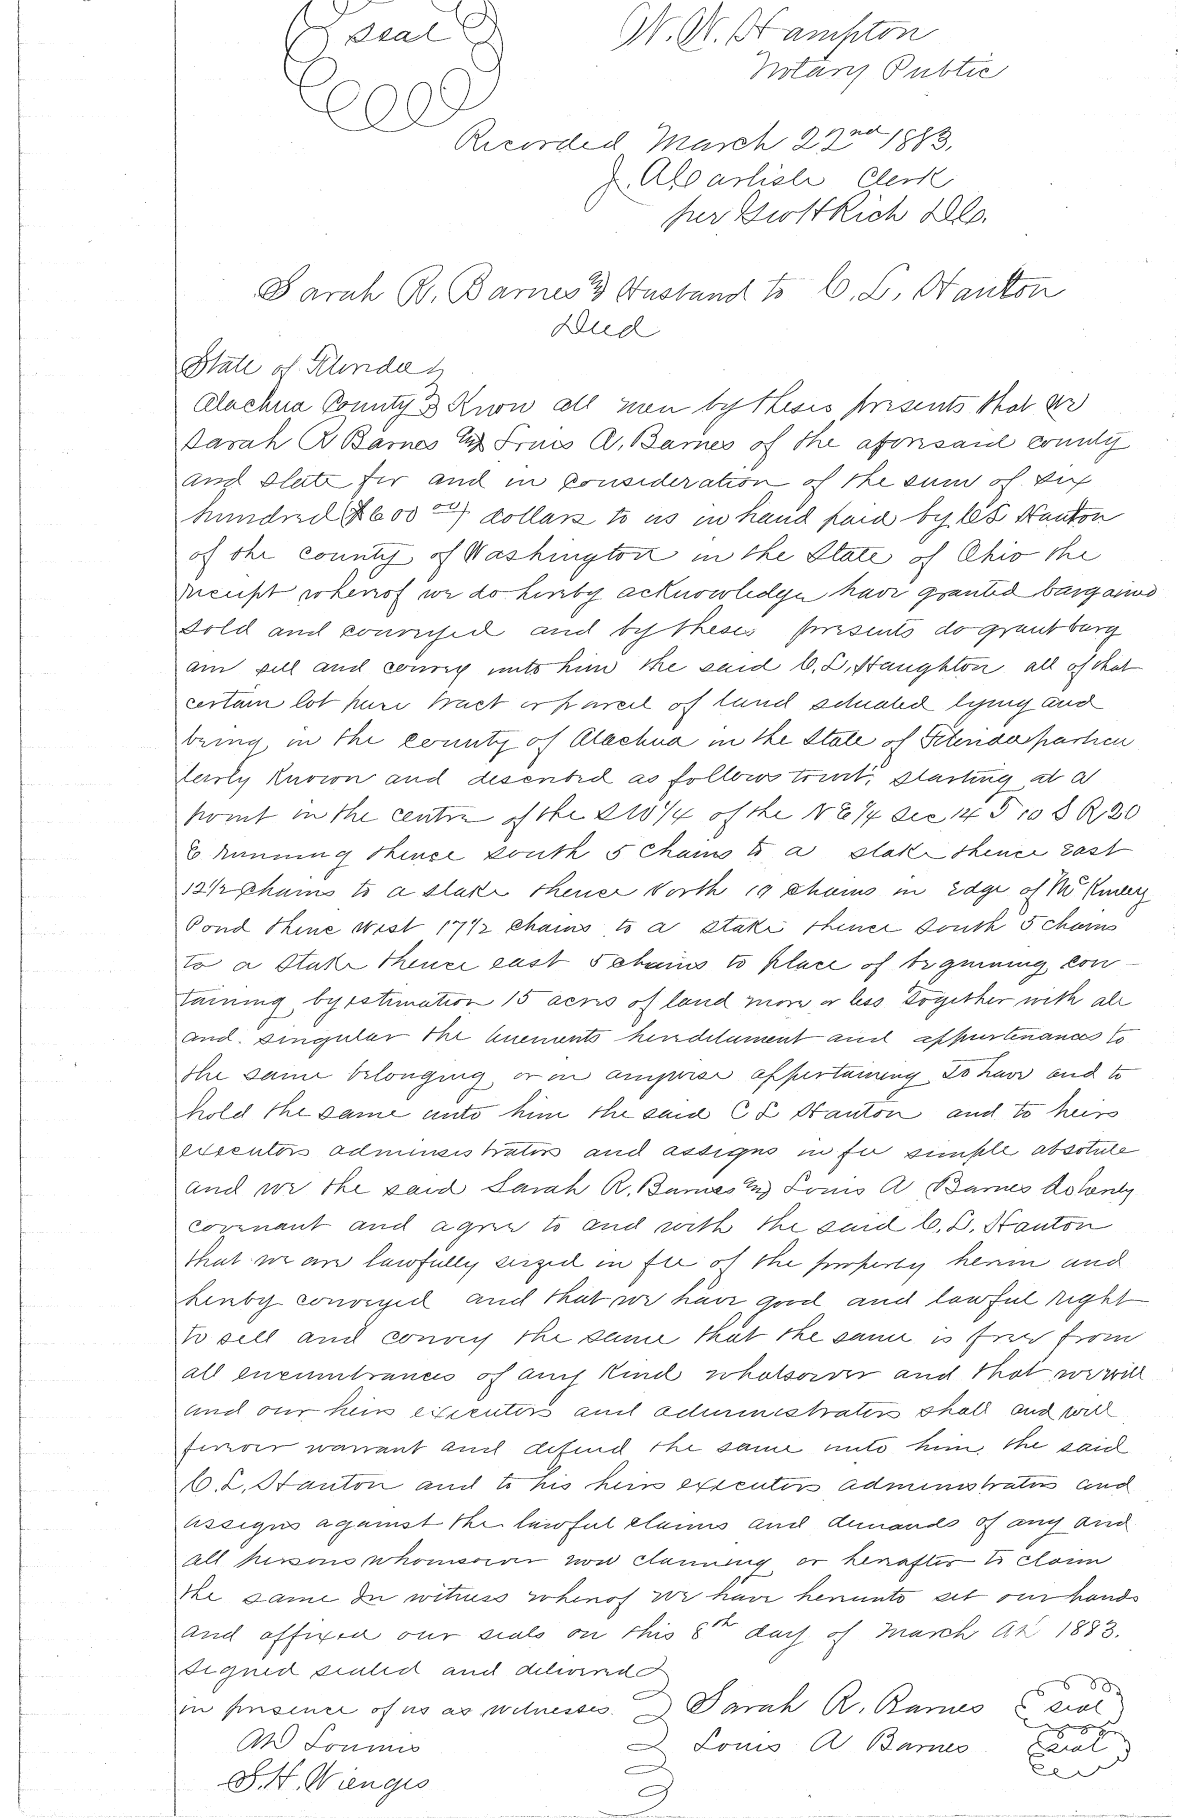 Seal
W. W. Hampton
Notary Public
Recorded March 22nd 1883.
J. A. Carlisle Clerk
per Scott Rich D.C.
Sarah R. Barnes & Husband to C. L. Stanton
Deed
State of Florida
Alachua County } Know all men by these presents that we
Sarah R Barnes & Louis A. Barnes of the aforesaid county
and state for and in consideration of the sum of six
hundred ($600 00) dollars to us in hand paid by C L Stanton
of the county of Washington in the State of Ohio the
receipt whereof we do hereby acknowledge have granted bargained
sold and conveyed and by these presents do grant barg
ain sell and convey unto him the said C. L. Haughton all of that
certain lot piece tract or parcel of land situated lying and
being in the county of Alachua in the State of Florida particu
larly known and described as follows towit; starting at a
point in the centre of the SW 1/4 of the NE 1/4 Sec 14 T 10 S R 20
E running thence south 5 chains to a stake thence east
12 1/2 chains to a stake thence North 10 chains in edge of
Pond thence west 17 1/2 chains to a stake thence south 5 chains
to a stake thence east 5 chains to place of beginning con-
taining by estimation 15 acres of land more or less together with all
and singular the tenements hereditament and appurtenances to
the same belonging or in anywise appertaining To have and to
hold the same unto him the said C L Stanton and to heirs
executors administrators and assigns in fee simple absolute
and we the said Sarah R. Barnes & Louis A Barnes do hereby
covenant and agree to and with the said C. L. Stanton
that we are lawfully seized in fee of the property herein and
hereby conveyed and that we have good and lawful right
to sell and convey the same that the same is free from
all encumbrances of any kind whatsoever and that we will
and our heirs executors and administrators shall and will
forever warrant and defend the same unto him, the said
C. L. Stanton and to his heirs executors administrators and
assigns against the lawful claims and demands of any and
all persons whomsoever now claiming or hereafter to claim
the same In witness whereof we have hereunto set our hands
and affixed our seals on this 8th day of March AD 1883.
Signed sealed and delivered
in presence of us as witnesses. Sarah R. Barnes seal
Louis A Barnes seal
S. H. Wienges